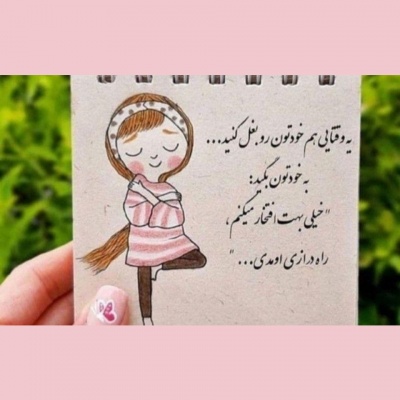 یه وقتایی هم خودتون رو بغل کنید...
به خودتون بگید:
"خیلی بهت افتخار میکنم،
راه درازی اومدی..."